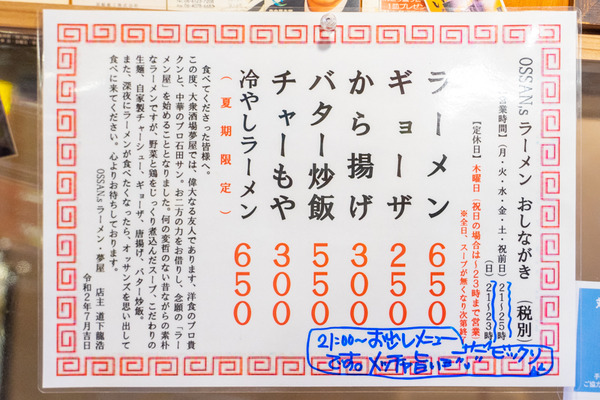 OSSAN.s ラーメン おしながき (税別)
営業時間】(月・火・水・金・土・祝前日)21〜25時
(日)21〜23時
【定休日】木曜日(祝日の場合は〜23時まで営業)
※全日、スープが無くなり次第終
ラーメン 650
ギョーザ 250
から揚げ 300
バター炒飯 550
チャーもや 300
冷やしラーメン 650
(夏期限定)
食べてくださった皆様へ。
この度、大衆酒場夢屋では、偉大なる友人であります、洋食のプロ貴
クンと、中華のプロ石田サン。お二方の力をお借りし、念願の「ラー
メン屋」を始めることとなりました。何の変哲のない昔ながらの素朴
なラーメンですが、野菜と鶏をじっくり煮込んだスープ、こだわりの
生麺、自家製チャーシュー、ギョーザ、唐揚げ、バター炒飯。
また、深夜にラーメンが食べたくなったら、オッサンズを思い出して
食べに来てください。心よりお待ちしております。
OSSAN.s ラーメン・夢屋 店主 道下龍浩
令和2年7月吉日
21:00〜お出しメニュー
です。メッチャ旨いョ
ビックリ